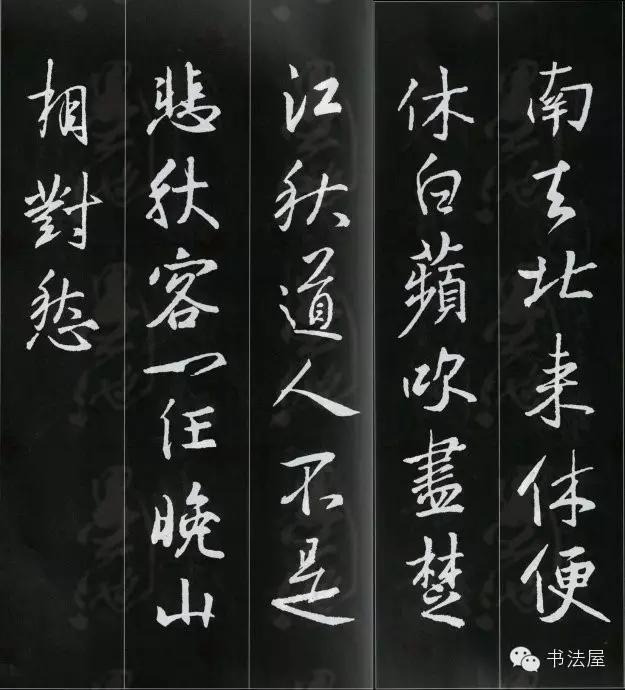 南去北来休便
休白蘋吹盡楚
江秋道人不是
悲秋客一任晚山
相對愁
书法屋